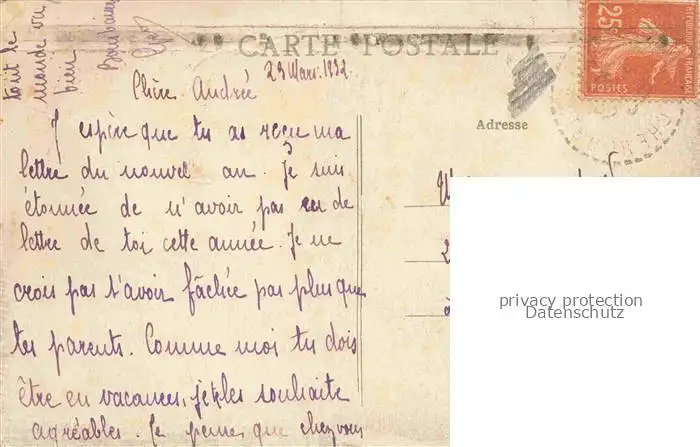 CARTE POSTALE
tout le
monde va
bien
23 Mars. 1932
Chère Andrée
J'espère que tu as reçu ma
lettre du nouvel an. Je suis
étonnée de n'avoir pas eu de
lettre de toi cette année. Je ne
crois pas t'avoir fâchée pas plus que
tes parents. Comme moi tu dois
être en vacances, je te les souhaite
agréables. Je pense que chez vous
Adresse
25c
POSTES
à
privacy protection
Datenschutz